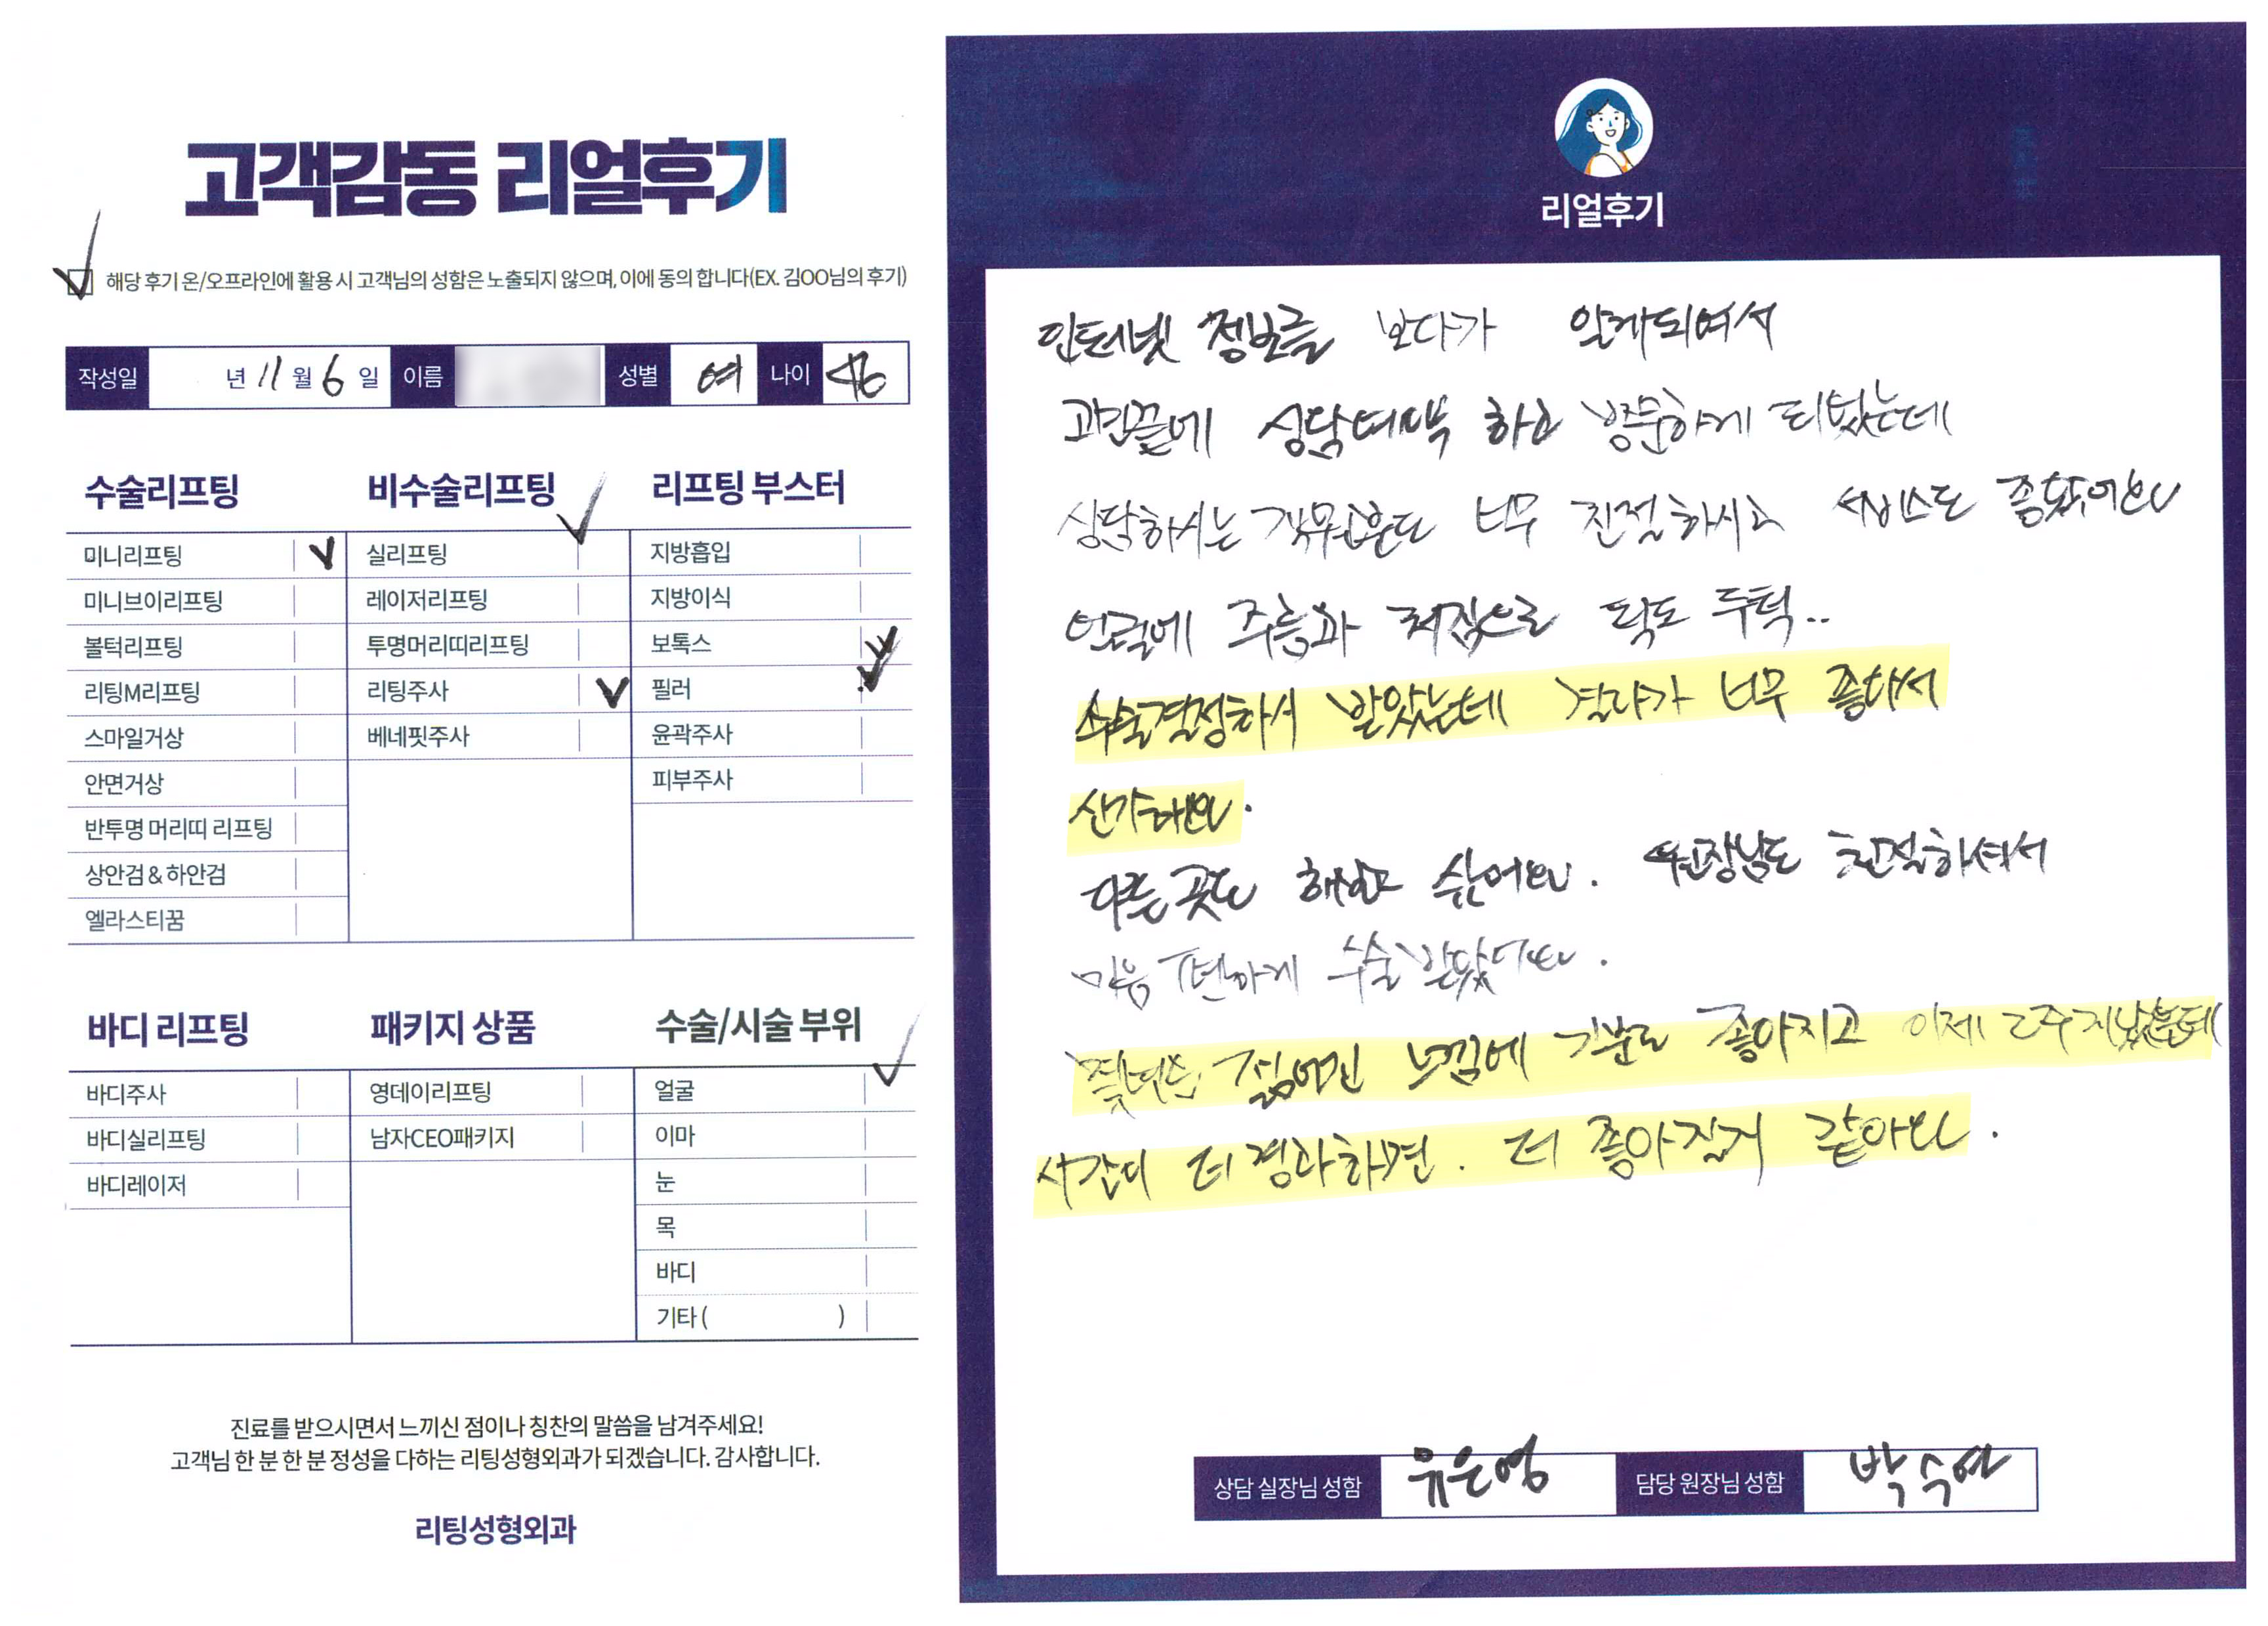 고객감동 리얼후기
해당 후기 온/오프라인에 활용 시 고객님의 성함은 노출되지 않으며, 이에 동의 합니다(EX. 김OO님의 후기)
작성일 년 11 월 6 일 이름 성별 여 나이 46
수술리프팅
미니리프팅
미니브이리프팅
볼턱리프팅
리팅M리프팅
스마일거상
안면거상
반투명 머리띠 리프팅
상안검 & 하안검
엘라스티꿈
비수술리프팅
실리프팅
레이저리프팅
투명머리띠리프팅
리팅주사
베네핏주사
리프팅 부스터
지방흡입
지방이식
보톡스
필러
윤곽주사
피부주사
바디 리프팅
바디주사
바디실리프팅
바디레이저
패키지 상품
영데이리프팅
남자CEO패키지
수술/시술 부위
얼굴
이마
눈
목
바디
기타 ( )
진료를 받으시면서 느끼신 점이나 칭찬의 말씀을 남겨주세요!
고객님 한 분 한 분 정성을 다하는 리팅성형외과가 되겠습니다. 감사합니다.
리팅성형외과
리얼후기
인터넷 정보를 보다가 알게되여서
고민끝에 상담예약 하고 방문하게 되었는데
상담하시는 너무 친절하시고 서비스도 좋았어요
얼굴에 주름과 처짐으로 턱도 두턱..
수술결정하서 받았는데 결과가 너무 좋아서
신기해요.
다른곳도 해보고 싶어요. 원장님도 친절하셔서
마음 편하게 수술 받았어요.
젊어진 느낌에 기분도 좋아지고 이제 2주 지났는데
시간이 더 경과하면. 더 좋아질거 같아요.
상담 실장님 성함 유은영 담당 원장님 성함 박수연